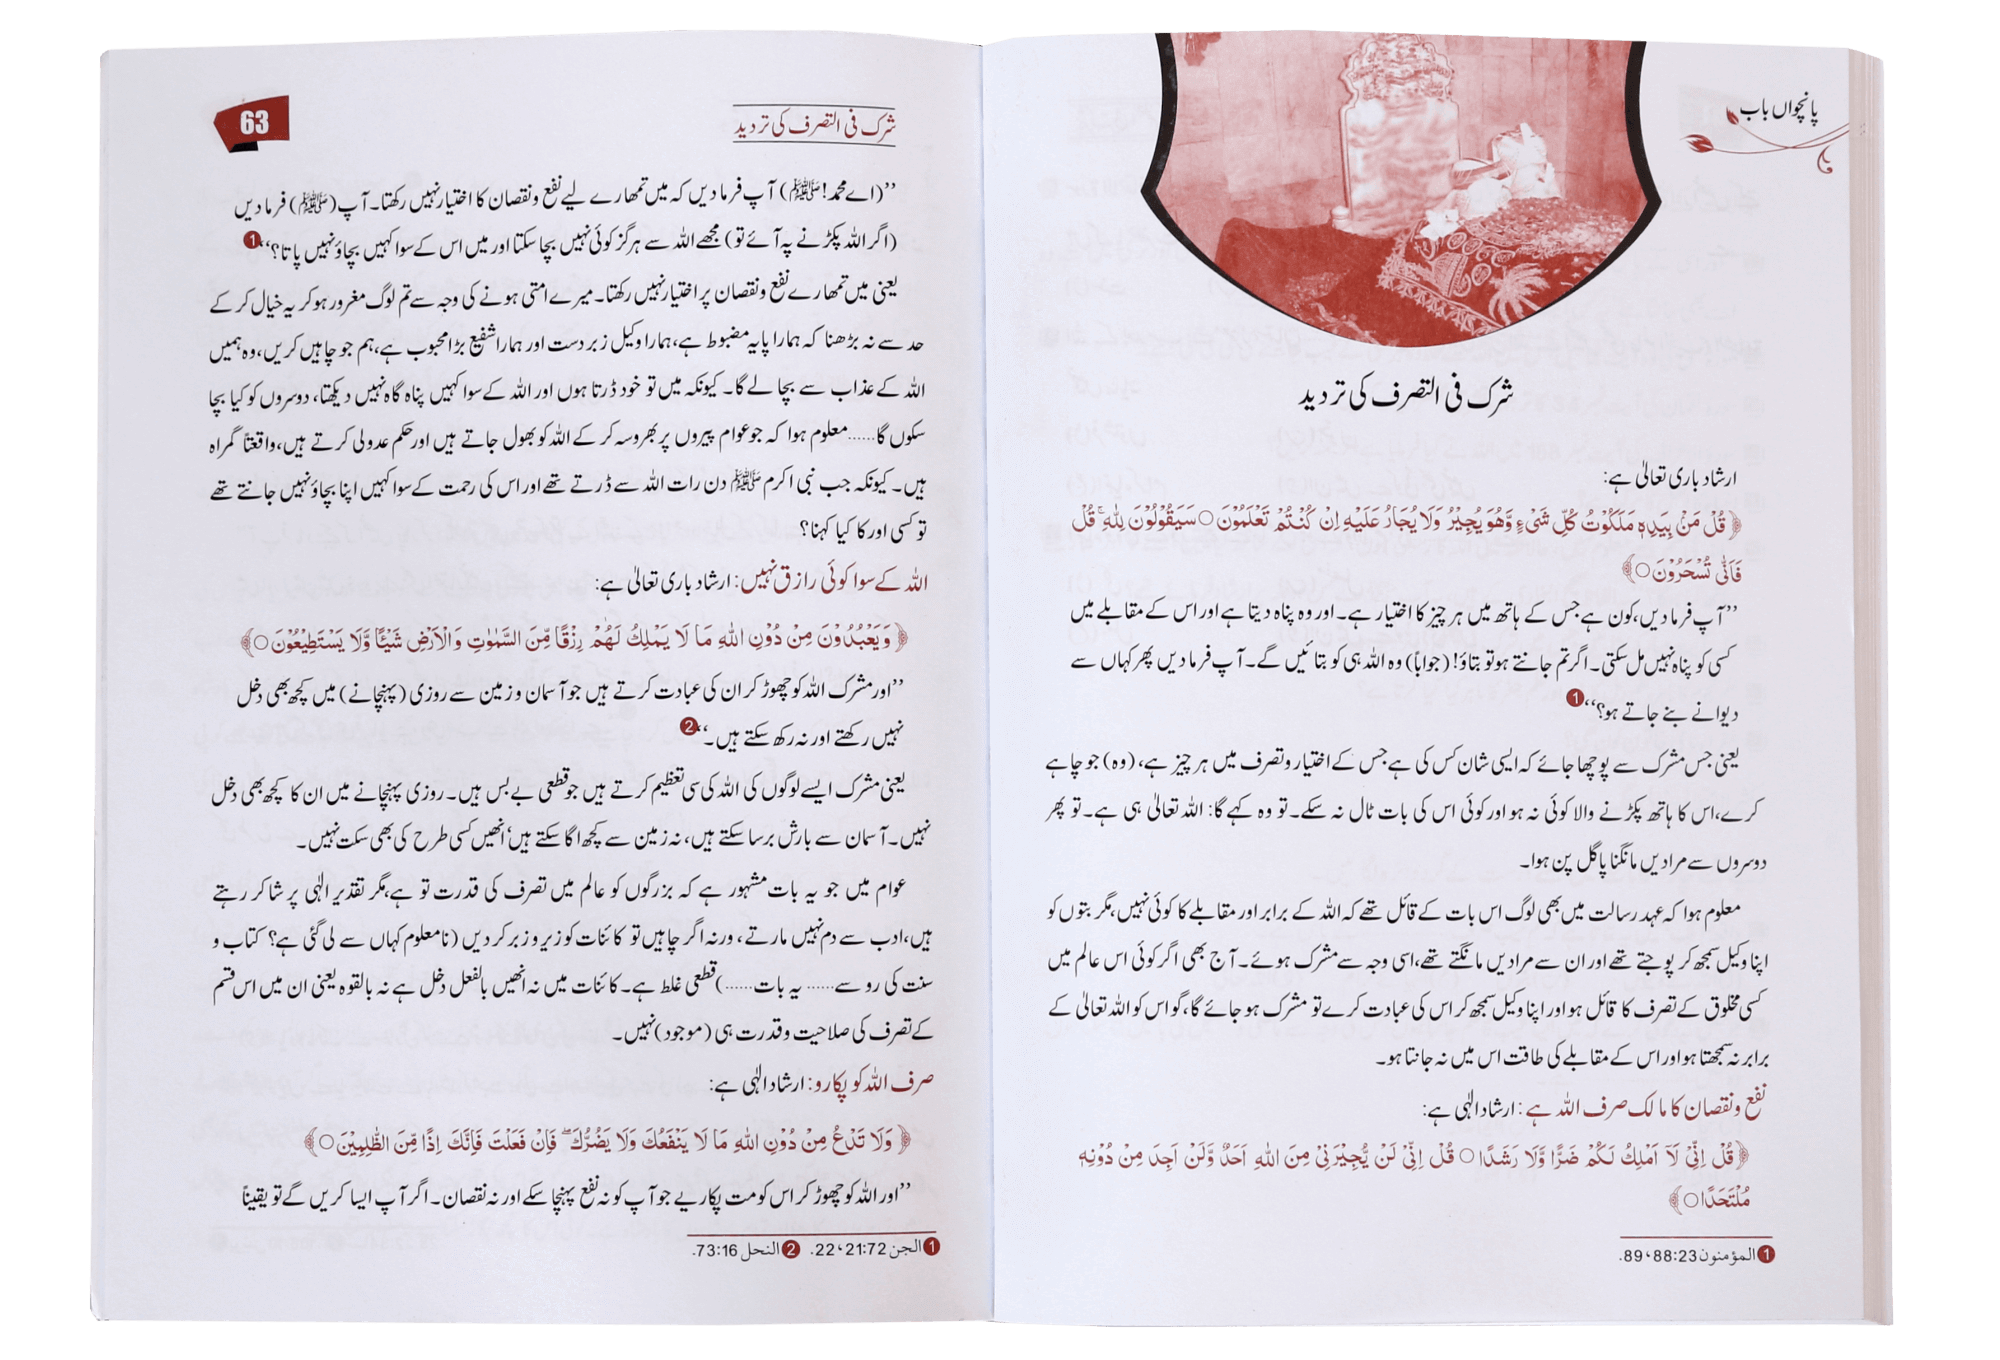 پانچواں باب
شرک فی التصرف کی تردید
ارشاد باری تعالیٰ ہے:
﴿قُلْ مَنْۢ بِيَدِهٖ مَلَكُوْتُ كُلِّ شَيْءٍ وَّهُوَ يُجِيْرُ وَلَا يُجَارُ عَلَيْهِ اِنْ كُنْتُمْ تَعْلَمُوْنَ○ سَيَقُوْلُوْنَ لِلّٰهِ ۚ قُلْ
فَاَنّٰى تُسْحَرُوْنَ○﴾
’’آپ فرما دیں، کون ہے جس کے ہاتھ میں ہر چیز کا اختیار ہے۔ اور وہ پناہ دیتا ہے اور اس کے مقابلے میں
کسی کو پناہ نہیں مل سکتی۔ اگر تم جانتے ہو تو بتاؤ! (جواباً) وہ اللہ ہی کو بتائیں گے۔ آپ فرما دیں پھر کہاں سے
دیوانے بنے جاتے ہو؟‘‘ 1
یعنی جس مشرک سے پوچھا جائے کہ ایسی شان کس کی ہے جس کے اختیار و تصرف میں ہر چیز ہے، (وہ) جو چاہے
کرے، اس کا ہاتھ پکڑنے والا کوئی نہ ہو اور کوئی اس کی بات ٹال نہ سکے۔ تو وہ کہے گا: اللہ تعالیٰ ہی ہے۔ تو پھر
دوسروں سے مرادیں مانگنا پاگل پن ہوا۔
معلوم ہوا کہ عہد رسالت میں بھی لوگ اس بات کے قائل تھے کہ اللہ کے برابر اور مقابلے کا کوئی نہیں، مگر بتوں کو
اپنا وکیل سمجھ کر پوجتے تھے اور ان سے مرادیں مانگتے تھے، اسی وجہ سے مشرک ہوئے۔ آج بھی اگر کوئی اس عالم میں
کسی مخلوق کے تصرف کا قائل ہو اور اپنا وکیل سمجھ کر اس کی عبادت کرے تو مشرک ہو جائے گا، گو اس کو اللہ تعالیٰ کے
برابر نہ سمجھتا ہو اور اس کے مقابلے کی طاقت اس میں نہ جانتا ہو۔
نفع و نقصان کا مالک صرف اللہ ہے: ارشاد الٰہی ہے:
﴿قُلْ اِنِّيْ لَآ اَمْلِكُ لَكُمْ ضَرًّا وَّلَا رَشَدًا○ قُلْ اِنِّيْ لَنْ يُّجِيْرَنِيْ مِنَ اللّٰهِ اَحَدٌ وَّلَنْ اَجِدَ مِنْ دُوْنِهٖ
مُلْتَحَدًا○﴾
1 المؤمنون 88:23، 89.
شرک فی التصرف کی تردید
63
’’(اے محمد! ﷺ) آپ فرما دیں کہ میں تمھارے لیے نفع و نقصان کا اختیار نہیں رکھتا۔ آپ (ﷺ) فرما دیں
(اگر اللہ پکڑنے پہ آئے تو) مجھے اللہ سے ہرگز کوئی نہیں بچا سکتا اور میں اس کے سوا کہیں بچاؤ نہیں پاتا؟‘‘ 1
یعنی میں تمھارے نفع و نقصان پر اختیار نہیں رکھتا۔ میرے امتی ہونے کی وجہ سے تم لوگ مغرور ہو کر یہ خیال کر کے
حد سے نہ بڑھنا کہ ہمارا پایہ مضبوط ہے، ہمارا وکیل زبردست اور ہمارا شفیع بڑا محبوب ہے، ہم جو چاہیں کریں، وہ ہمیں
اللہ کے عذاب سے بچا لے گا۔ کیونکہ میں تو خود ڈرتا ہوں اور اللہ کے سوا کہیں پناہ گاہ نہیں دیکھتا، دوسروں کو کیا بچا
سکوں گا...... معلوم ہوا کہ جو عوام پیروں پر بھروسہ کر کے اللہ کو بھول جاتے ہیں اور حکم عدولی کرتے ہیں، واقعتاً گمراہ
ہیں۔ کیونکہ جب نبی اکرم ﷺ دن رات اللہ سے ڈرتے تھے اور اس کی رحمت کے سوا کہیں اپنا بچاؤ نہیں جانتے تھے
تو کسی اور کا کیا کہنا؟
اللہ کے سوا کوئی رازق نہیں: ارشاد باری تعالیٰ ہے:
﴿وَيَعْبُدُوْنَ مِنْ دُوْنِ اللّٰهِ مَا لَا يَمْلِكُ لَهُمْ رِزْقًا مِّنَ السَّمٰوٰتِ وَالْاَرْضِ شَيْئًا وَّلَا يَسْتَطِيْعُوْنَ○﴾
’’اور مشرک اللہ کو چھوڑ کر ان کی عبادت کرتے ہیں جو آسمان و زمین سے روزی (پہنچانے) میں کچھ بھی دخل
نہیں رکھتے اور نہ رکھ سکتے ہیں۔‘‘ 2
یعنی مشرک ایسے لوگوں کی اللہ کی سی تعظیم کرتے ہیں جو قطعی بے بس ہیں۔ روزی پہنچانے میں ان کا کچھ بھی دخل
نہیں۔ آسمان سے بارش برسا سکتے ہیں، نہ زمین سے کچھ اگا سکتے ہیں، انھیں کسی طرح کی بھی سکت نہیں۔
عوام میں جو یہ بات مشہور ہے کہ بزرگوں کو عالم میں تصرف کی قدرت تو ہے، مگر تقدیر الٰہی پر شاکر رہتے
ہیں، ادب سے دم نہیں مارتے، ورنہ اگر چاہیں تو کائنات کو زیر و زبر کر دیں (نامعلوم کہاں سے لی گئی ہے؟ کتاب و
سنت کی رو سے...... یہ بات......) قطعی غلط ہے۔ کائنات میں نہ انھیں بالفعل دخل ہے نہ بالقوہ یعنی ان میں اس قسم
کے تصرف کی صلاحیت و قدرت ہی (موجود) نہیں۔
صرف اللہ کو پکارو: ارشاد الٰہی ہے:
﴿وَلَا تَدْعُ مِنْ دُوْنِ اللّٰهِ مَا لَا يَنْفَعُكَ وَلَا يَضُرُّكَ ۖ فَاِنْ فَعَلْتَ فَاِنَّكَ اِذًا مِّنَ الظّٰلِمِيْنَ○﴾
’’اور اللہ کو چھوڑ کر اس کو مت پکاریے جو آپ کو نہ نفع پہنچا سکے اور نہ نقصان۔ اگر آپ ایسا کریں گے تو یقیناً
1 الجن 21:72، 22. 2 النحل 73:16.